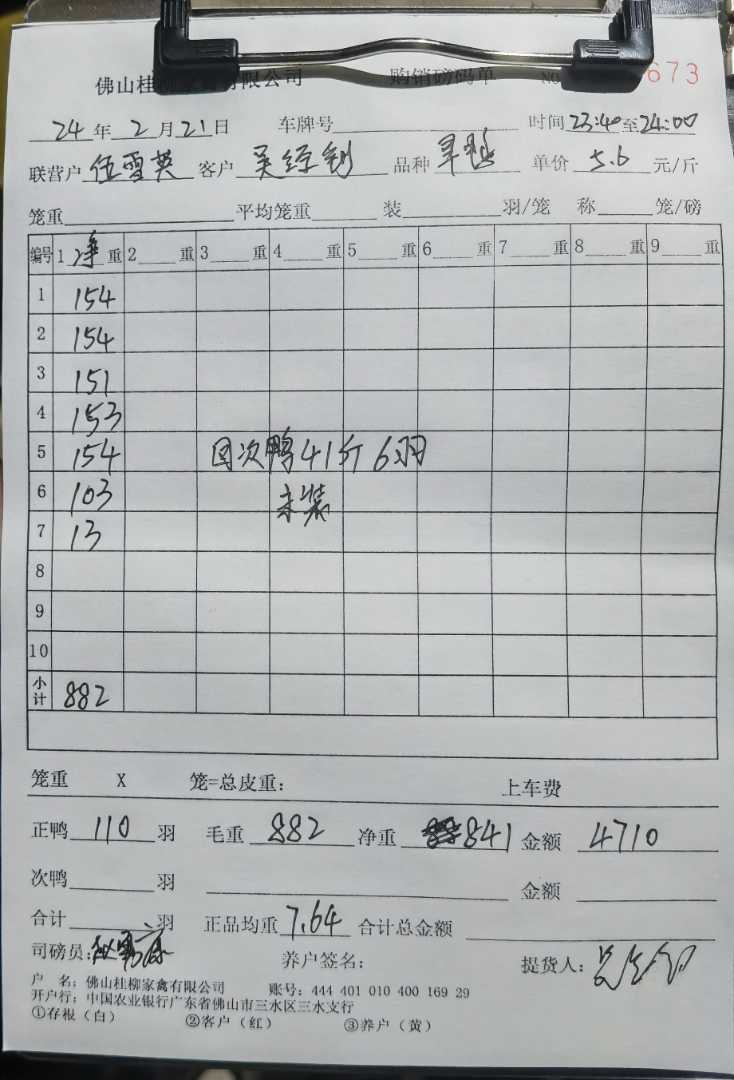 佛山桂柳家禽有限公司 购销磅码单 NO 673
24年2月21日 车牌号 时间23:40至24:00
联营户 伍雪英 客户 吴 品种 单价 5.6 元/斤
笼重 平均笼重 装 羽/笼 称 笼/磅
编号 1 净重 2 重 3 重 4 重 5 重 6 重 7 重 8 重 9 重
1 154
2 154
3 151
4 153
5 154 回次鸭41斤6羽
6 103 未装
7 13
8
9
10
小计 882
笼重 X 笼=总皮重: 上车费
正鸭 110 羽 毛重 882 净重 841 金额 4710
次鸭 羽 金额
合计 羽 正品均重 7.64 合计总金额
司磅员: 养户签名: 提货人:
户 名: 佛山桂柳家禽有限公司 账号: 444 401 010 400 169 29
开户行: 中国农业银行广东省佛山市三水区三水支行
①存根(白) ②客户(红) ③养户(黄)